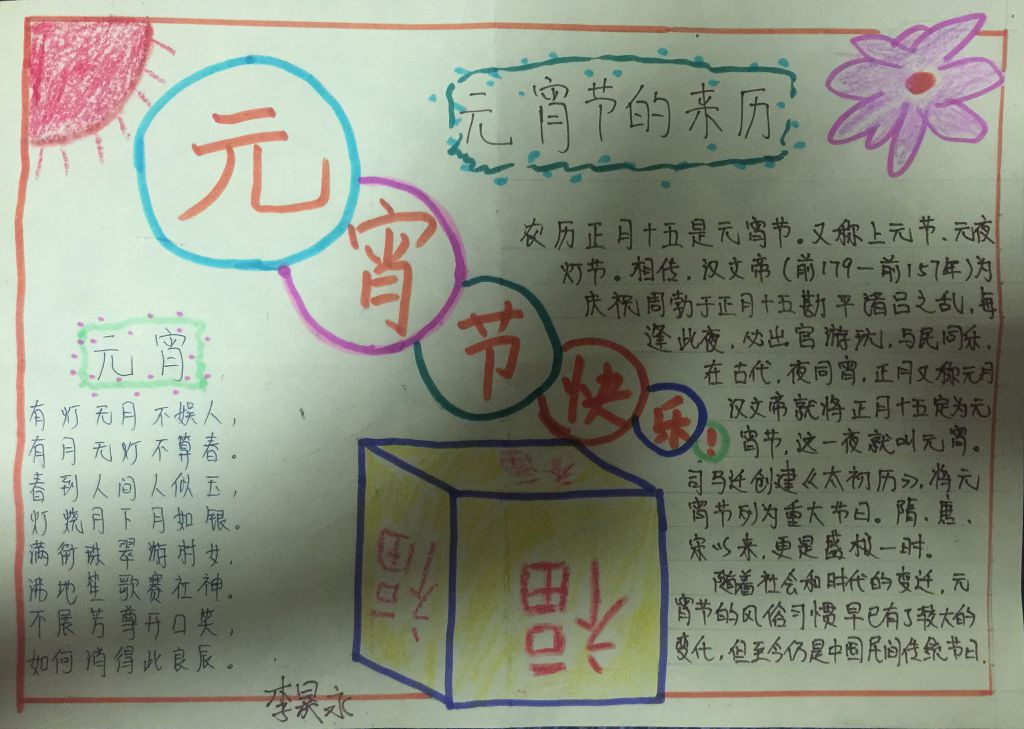 元宵节快乐!
元宵节的来历
农历正月十五是元宵节。又称上元节、元夜
灯节。相传,汉文帝(前179—前157年)为
庆祝周勃于正月十五勘平诸吕之乱,每
逢此夜,必出宫游玩,与民同乐,
在古代,夜同宵,正月又称元月
汉文帝就将正月十五定为元
宵节,这一夜就叫元宵。
司马迁创建《太初历》,将元
宵节列为重大节日。隋、唐、
宋以来,更是盛极一时。
随着社会和时代的变迁,元
宵节的风俗习惯早已有了较大的
变化,但至今仍是中国民间传统节日.
元宵
有灯无月不娱人,
有月无灯不算春。
春到人间人似玉,
灯烧月下月如银。
满街珠翠游村女,
沸地笙歌赛社神。
不展芳尊开口笑,
如何消得此良辰。
福
福
福
李昊永